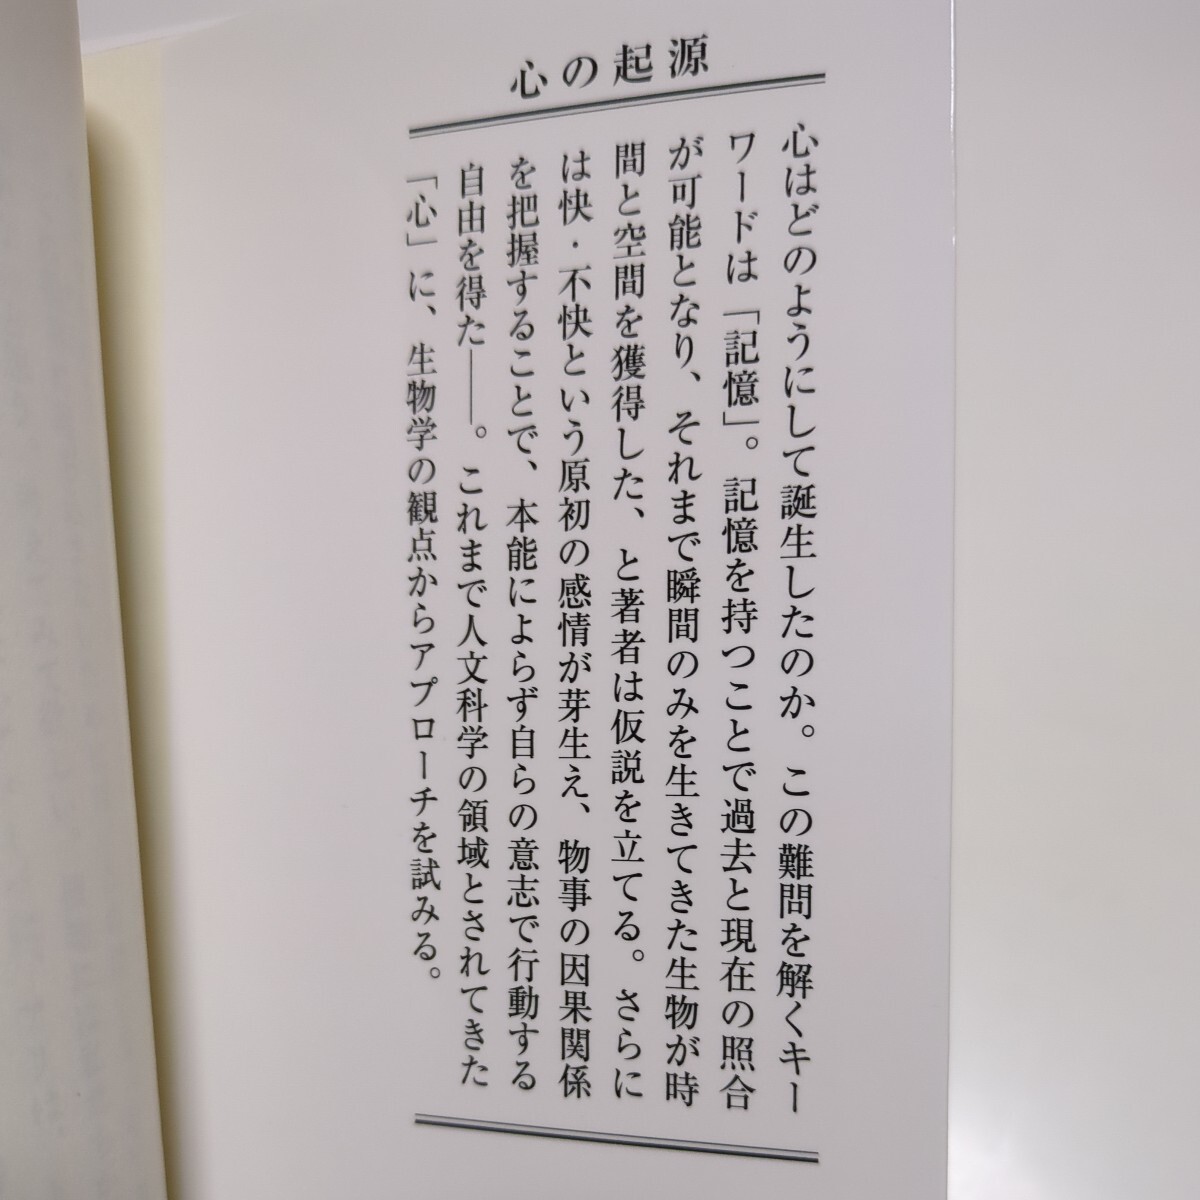 心の起源
心はどのようにして誕生したのか。この難問を解くキー
ワードは「記憶」。記憶を持つことで過去と現在の照合
が可能となり、それまで瞬間のみを生きてきた生物が時
間と空間を獲得した、と著者は仮説を立てる。さらに
は快・不快という原初の感情が芽生え、物事の因果関係
を把握することで、本能によらず自らの意志で行動する
自由を得た――。これまで人文科学の領域とされてきた
「心」に、生物学の観点からアプローチを試みる。